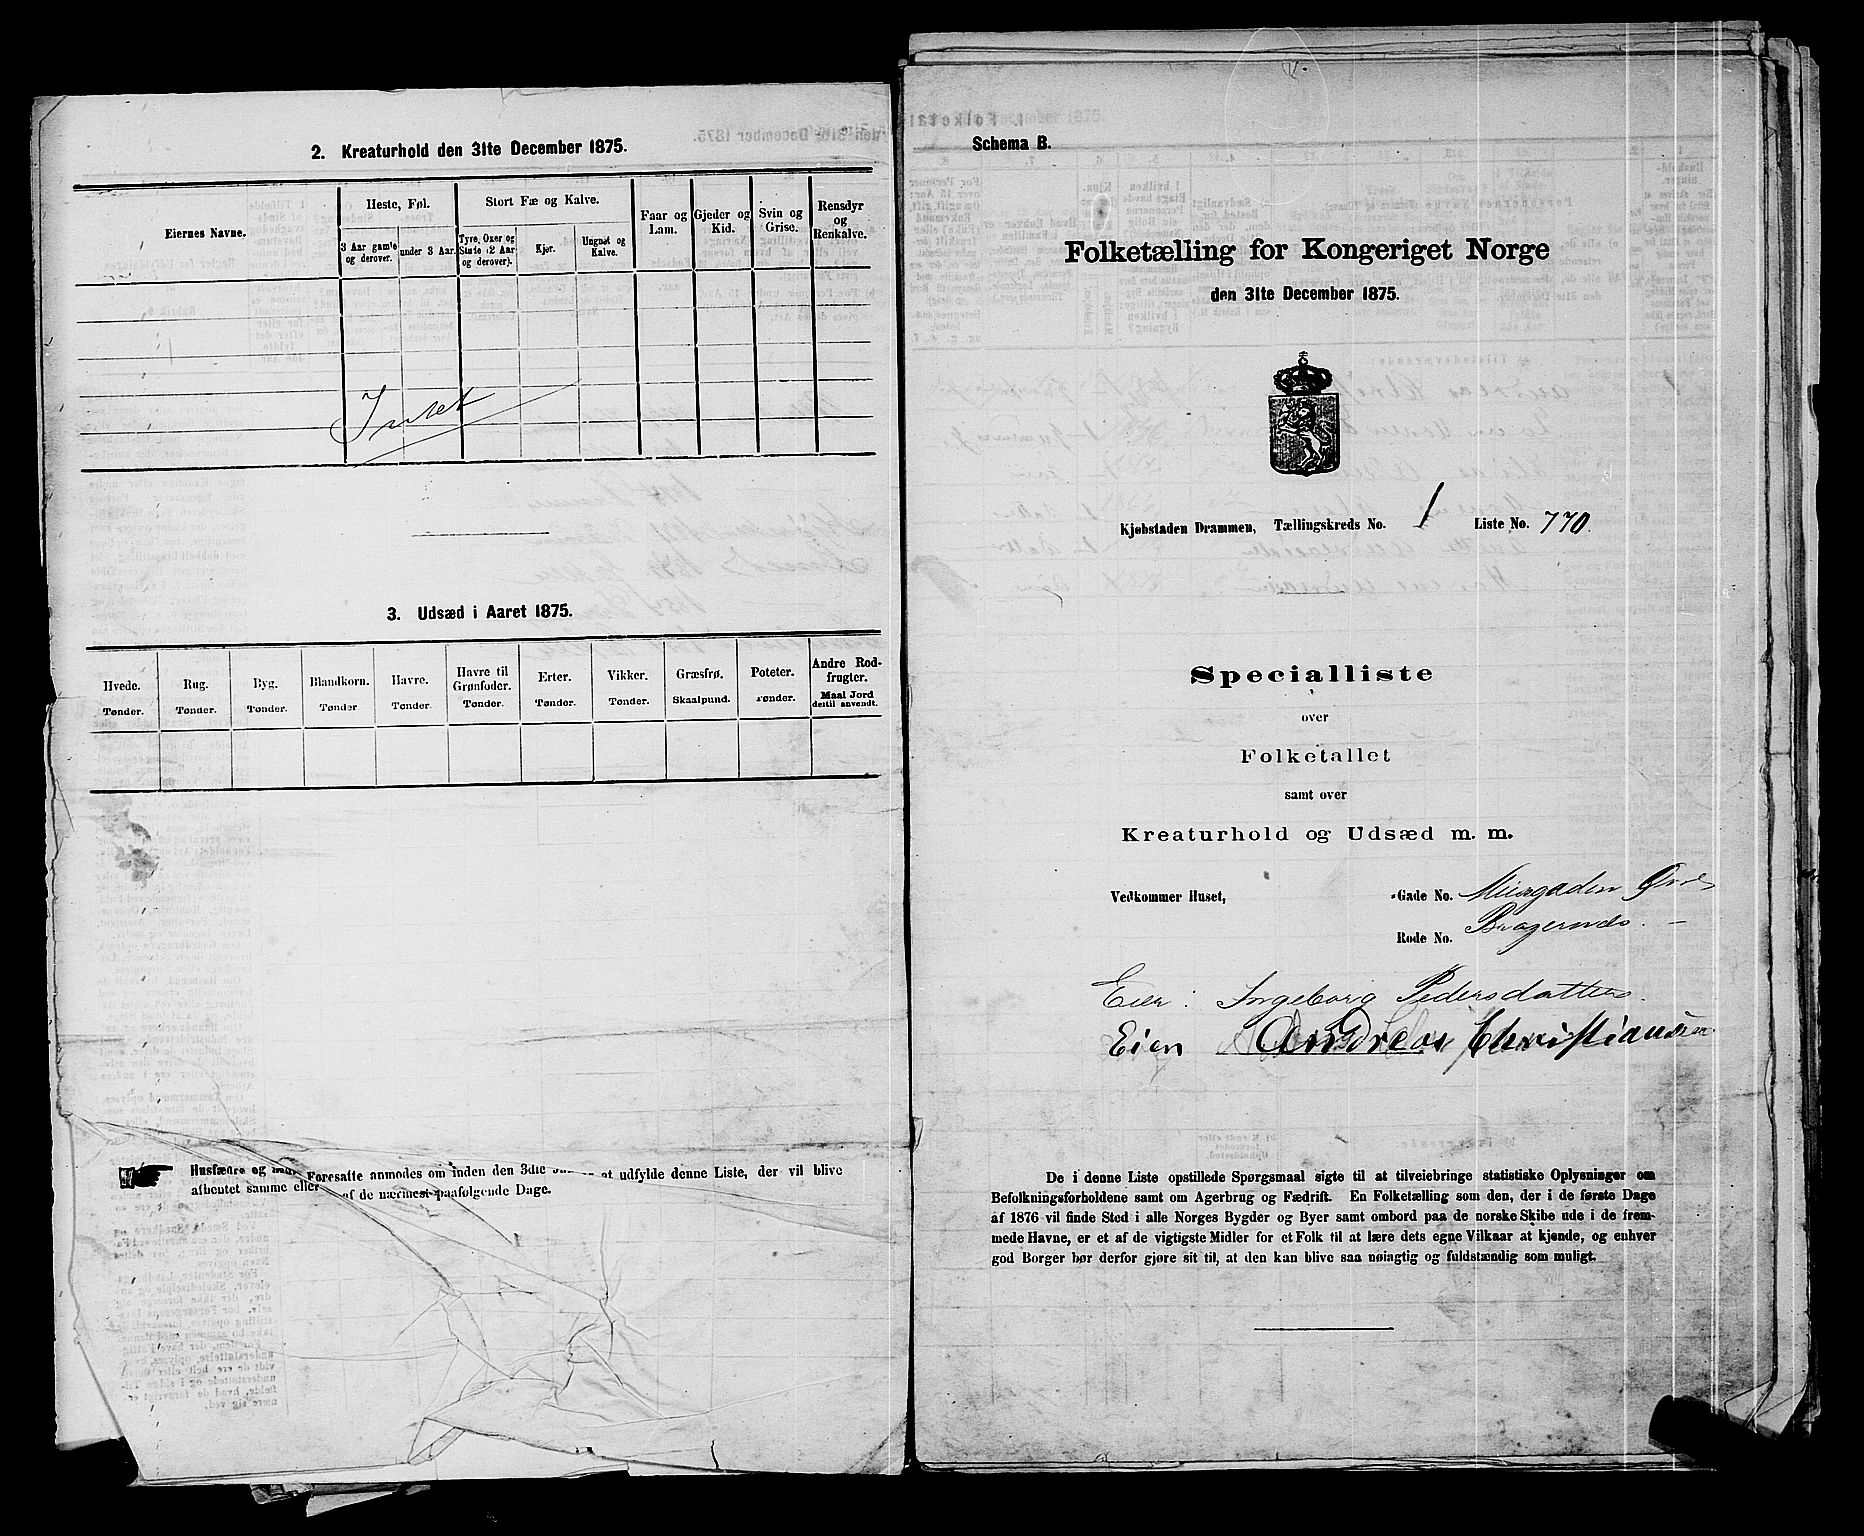 2. Kreaturhold den 31te December 1875.
Eiernes Navne.
Heste, Føl.
3 Aar gamle og derover.
under 3 Aar.
Stort Fæ og Kalve.
Tyre, Oxer og Stude (2 Aar og derover).
Kjør.
Ungnøt og Kalve.
Faar og Lam.
Gjeder og Kid.
Svin og Grise.
Rensdyr og Renkalve.
Intet
3. Udsæd i Aaret 1875.
Hvede. Tønder.
Rug. Tønder.
Byg. Tønder.
Blandkorn. Tønder
Havre. Tønder.
Havre til Grønfoder. Tønder.
Erter. Tønder.
Vikker. Tønder.
Græsfrø. Skaalpund.
Poteter. Tønder.
Andre Rodfrugter. Maal Jord dertil anvendt.
Husfædre og Foresatte anmodes om inden den 3dte at udfylde denne Liste, der vil blive
afhentet samme eller af de nærmest paafølgende Dage.
Schema B.
Folketælling for Kongeriget Norge
den 31te December 1875.
Kjøbstaden Drammen, Tællingskreds No. 1 Liste No. 770.
Specialliste
over
Folketallet
samt over
Kreaturhold og Udsæd m. m.
Vedkommer Huset, Gade No. Muusgaden Øvre
Rode No. Bragernæs. —
Eier: Ingeborg Pedersdatter.
Eier Andreas Christiansen
De i denne Liste opstillede Spørgsmaal sigte til at tilveiebringe statistiske Oplysninger om
Befolkningsforholdene samt om Agerbrug og Fædrift. En Folketælling som den, der i de første Dage
af 1876 vil finde Sted i alle Norges Bygder og Byer samt ombord paa de norske Skibe ude i de frem-
mede Havne, er et af de vigtigste Midler for et Folk til at lære dets egne Vilkaar at kjende, og enhver
god Borger bør derfor gjøre sit til, at den kan blive saa nøiagtig og fuldstændig som muligt.